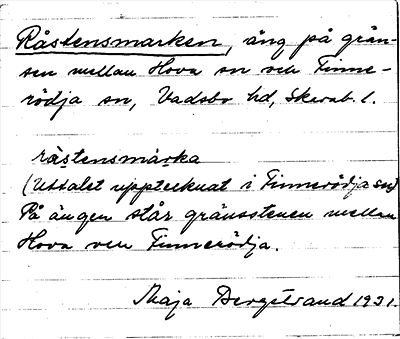 Råstensmarken, äng på grän-
sen mellan Hova sn och Finne-
rödja sn, Vadsbo hd, Skarab. l.
råstensmarka
(Uttalet upptecknat i Finnerödja sn)
På ängen står gränsstenen mellan
Hova och Finnerödja.
Maja Bergstrand 1931.